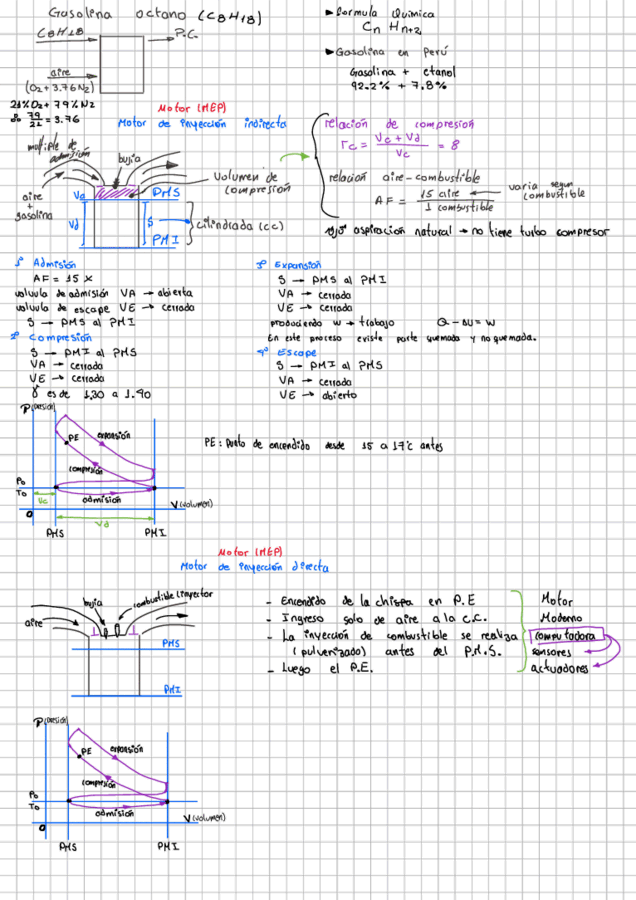 Gasolina octano (C8H18)
C8H18
P.C.
aire
(O2 + 3.76 N2)
21% O2 + 79% N2
79/21 = 3.76
► formula Química
Cn Hn+2
► Gasolina en Perú
Gasolina + etanol
92.2% + 7.8%
Motor (MEP)
Motor de inyección indirecta
multiple de admisión
bujia
aire + gasolina
Vc
Vd
S
PMS
PMI
Volumen de compresión
cilindrada (cc)
relación de compresión
rc = (Vc + Vd) / Vc = 8
relación aire-combustible
AF = 15 aire / 1 combustible
varia segun combustible
ojo: aspiración natural → no tiene turbo compresor
1° Admisión
AF = 15 x
valvula de admisión VA → abierta
valvula de escape VE → cerrada
S → PMS al PMI
2° Compresión
S → PMI al PMS
VA → cerrada
VE → cerrada
γ es de 1.30 a 1.40
3° Expansión
S → PMS al PMI
VA → cerrada
VE → cerrada
produciendo w → trabajo Q - ΔU = W
En este proceso existe parte quemada y no quemada.
4° Escape
S → PMI al PMS
VA → cerrada
VE → abierto
P(presión)
PE
expansión
compresión
admisión
Po
To
Vc
0
V(volumen)
Vd
PMS
PMI
PE: Punto de encendido desde 15 a 17°c antes
Motor (MEP)
Motor de inyección directa
bujia
combustible (inyector)
aire
PMS
PMI
- Encendido de la chispa en P.E
- Ingreso solo de aire a la c.c.
- La inyección de combustible se realiza
(pulverizado) antes del P.M.S.
- Luego el P.E.
Motor
Moderno
computadora
sensores
actuadores
P(presión)
PE
expansión
compresión
admisión
Po
To
0
V(volumen)
PMS
PMI